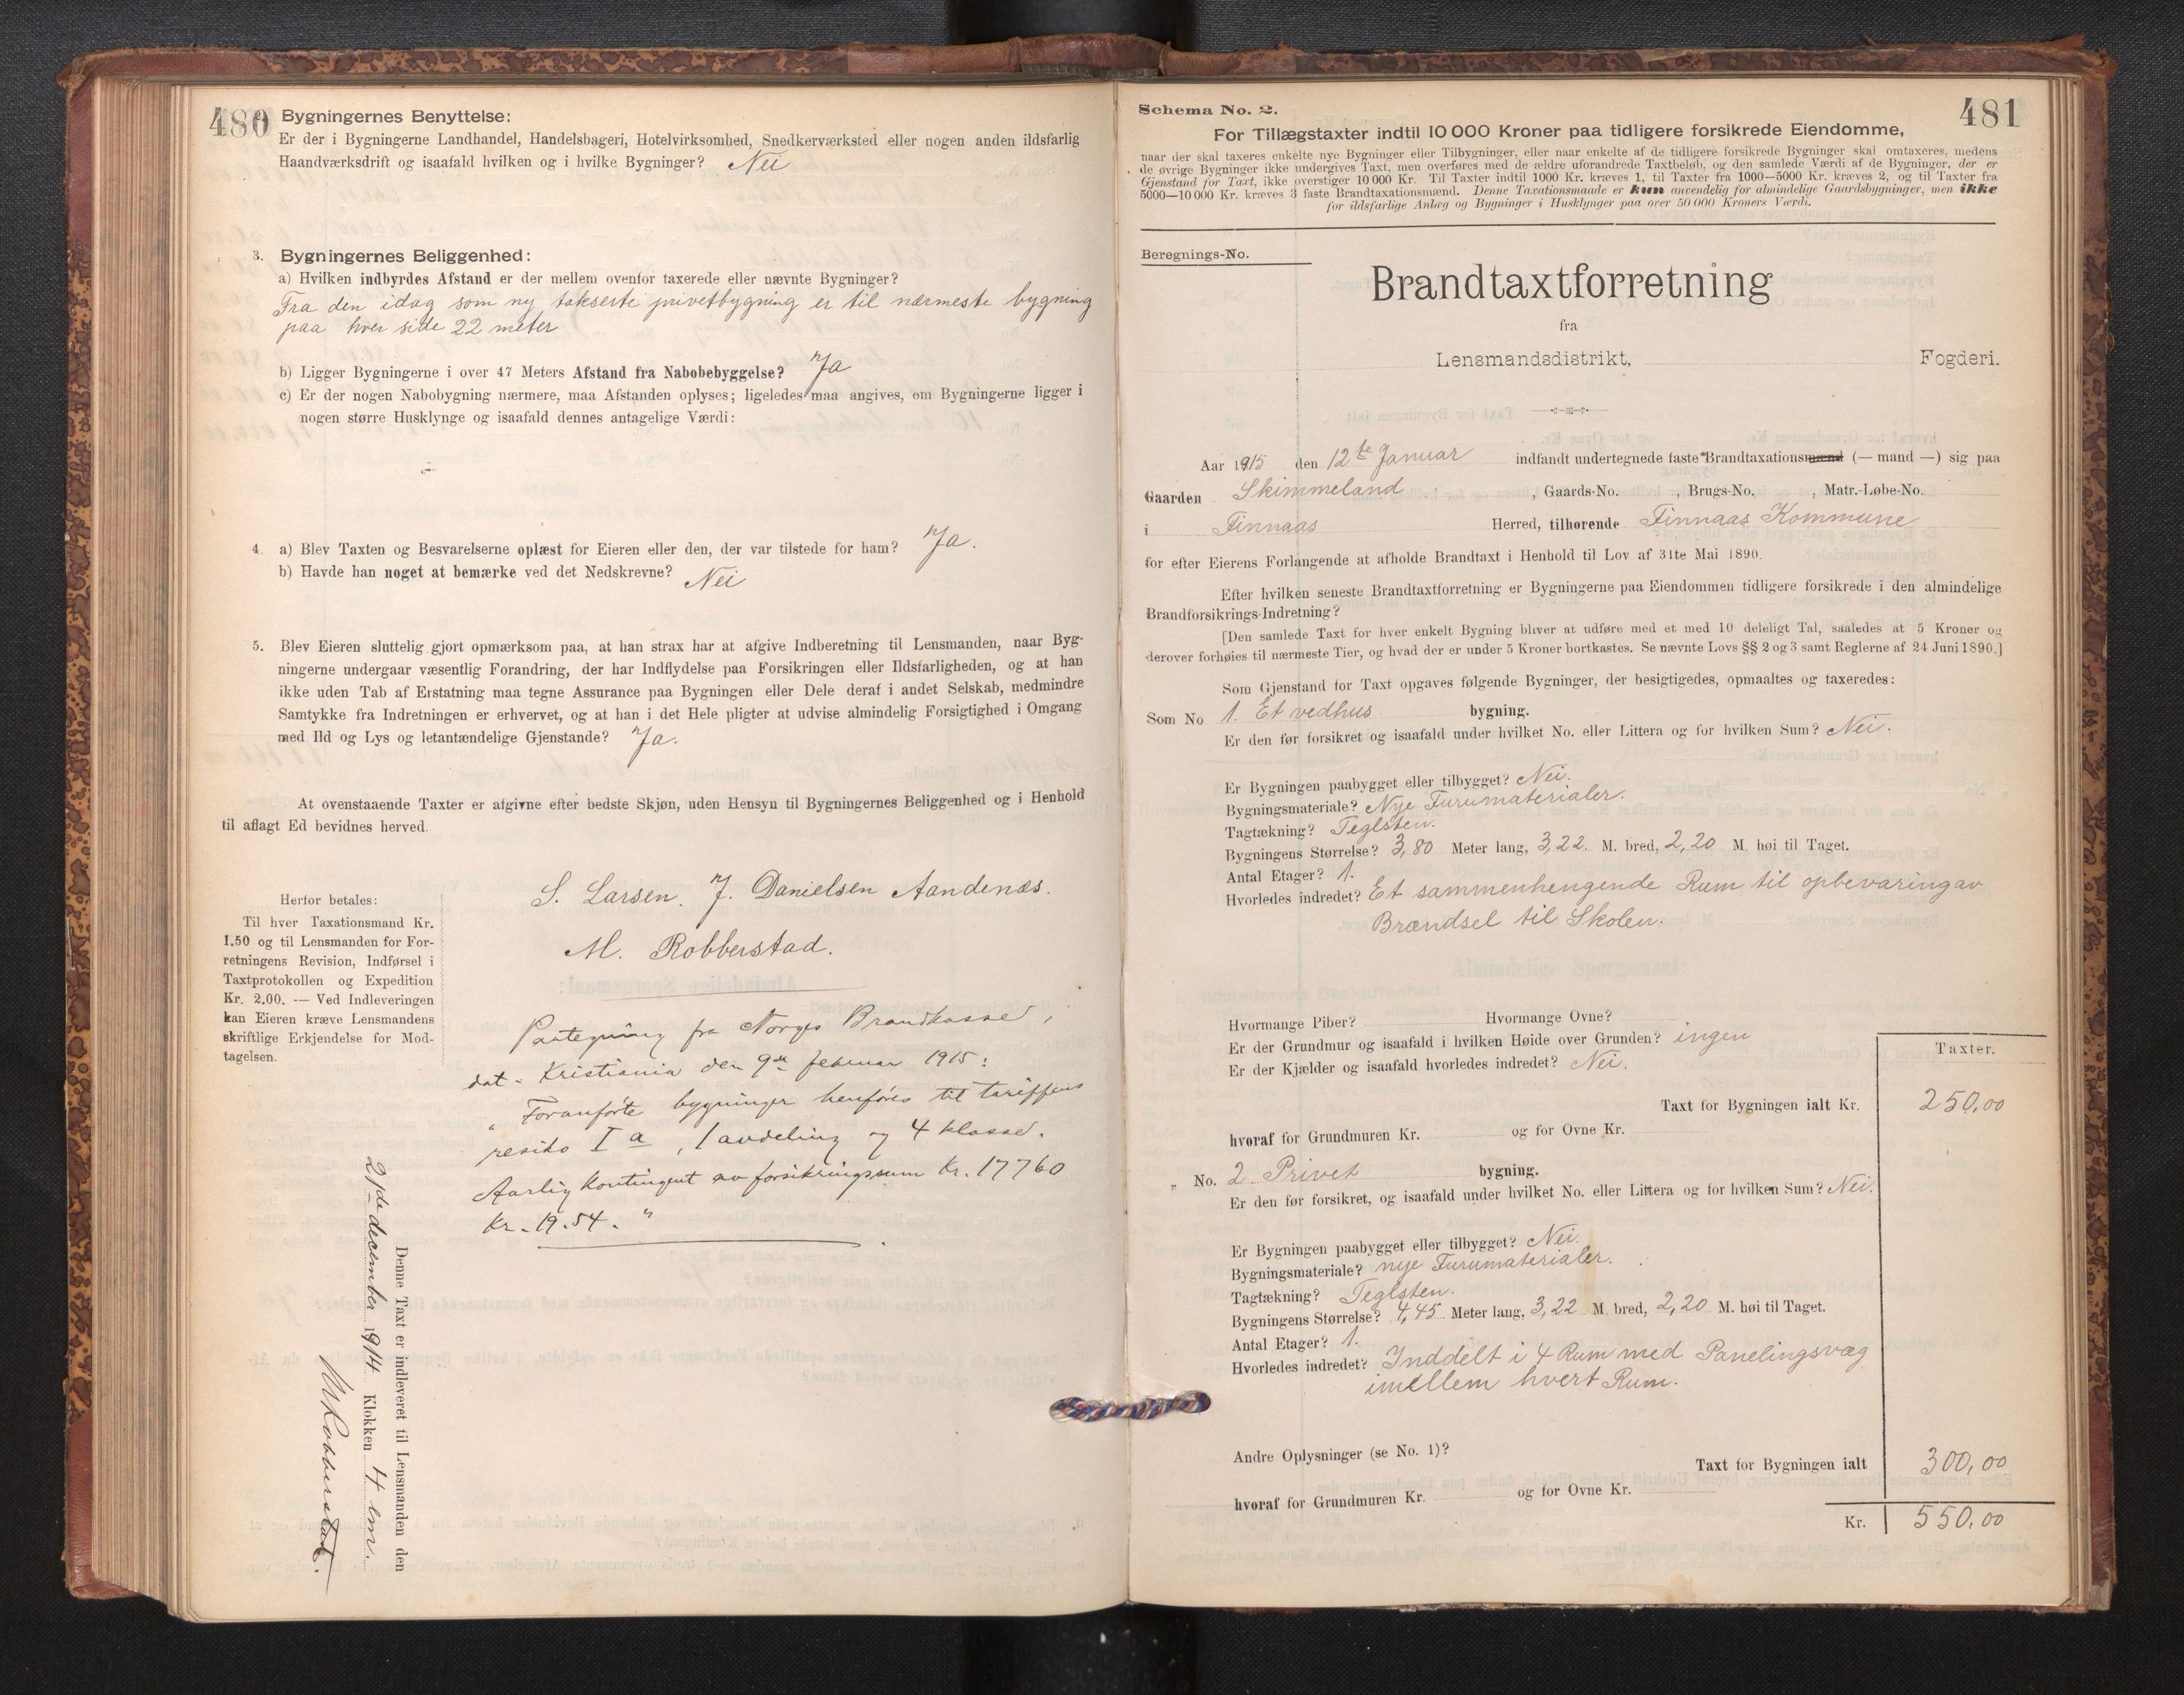 480
Bygningernes Benyttelse:
Er der i Bygningerne Landhandel, Handelsbageri, Hotelvirksomhed, Snedkerværksted eller nogen anden ildsfarlig
Haandværksdrift og isaafald hvilken og i hvilke Bygninger? Nei
3. Bygningernes Beliggenhed:
a) Hvilken indbyrdes Afstand er der mellem ovenfor taxerede eller nævnte Bygninger?
Fra den idag som ny takserte privetbygning er til nærmeste bygning
paa hver side 22 meter
b) Ligger Bygningerne i over 47 Meters Afstand fra Nabobebyggelse? Ja
c) Er der nogen Nabobygning nærmere, maa Afstanden oplyses; ligeledes maa angives, om Bygningerne ligger i
nogen større Husklynge og isaafald dennes antagelige Værdi:
4. a) Blev Taxten og Besvarelserne oplæst for Eieren eller den, der var tilstede for ham? Ja.
b) Havde han noget at bemærke ved det Nedskrevne? Nei
5. Blev Eieren sluttelig gjort opmærksom paa, at han strax har at afgive Indberetning til Lensmanden, naar Byg-
ningerne undergaar væsentlig Forandring, der har Indflydelse paa Forsikringen eller Ildsfarligheden, og at han
ikke uden Tab af Erstatning maa tegne Assurance paa Bygningen eller Dele deraf i andet Selskab, medmindre
Samtykke fra Indretningen er erhvervet, og at han i det Hele pligter at udvise almindelig Forsigtighed i Omgang
med Ild og Lys og letantændelige Gjenstande? Ja.
At ovenstaaende Taxter er afgivne efter bedste Skjøn, uden Hensyn til Bygningernes Beliggenhed og i Henhold
til aflagt Ed bevidnes herved.
S. Larsen. J. Danielsen Aandenæs.
M. Robberstad.
Herfor betales:
Til hver Taxationsmand Kr.
1.50 og til Lensmanden for For-
retningens Revision, Indførsel i
Taxtprotokollen og Expedition
Kr. 2.00. — Ved Indleveringen
kan Eieren kræve Lensmandens
skriftlige Erkjendelse for Mod-
tagelsen.
Paategning fra Norges Brandkasse,
dat. Kristiania den 9de februar 1915:
"Foranførte bygninger henføres til tariffens
resiko I a, 1 avdeling og 4 klasse.
Aarlig kontingent av forsikringssum Kr. 17760
Kr. 19.54."
Denne Taxt er indleveret til Lensmanden den
21de december 1914 Klokken 4 em.
M Robberstad.
Schema No. 2.
481
For Tillægstaxter indtil 10 000 Kroner paa tidligere forsikrede Eiendomme,
naar der skal taxeres enkelte nye Bygninger eller Tilbygninger, eller naar enkelte af de tidligere forsikrede Bygninger skal omtaxeres, medens
de øvrige Bygninger ikke undergives Taxt, men overføres med de ældre uforandrede Taxtbeløb, og den samlede Værdi af de Bygninger, der er
Gjenstand for Taxt, ikke overstiger 10 000 Kr. Til Taxter indtil 1000 Kr. kræves 1, til Taxter fra 1000—5000 Kr. kræves 2, og til Taxter fra
5000—10 000 Kr. kræves 3 faste Brandtaxationsmænd. Denne Taxationsmaade er kun anvendelig for almindelige Gaardsbygninger, men ikke
for ildsfarlige Anlæg og Bygninger i Husklynger paa over 50 000 Kroners Værdi.
Beregnings-No.
Brandtaxtforretning
fra
Lensmandsdistrikt, Fogderi.
Aar 1915 den 12te Januar indfandt undertegnede faste Brandtaxationsmænd (— mand —) sig paa
Gaarden Skimmeland, Gaards-No. , Brugs-No. , Matr.-Løbe-No.
i Finnaas Herred, tilhørende Finnaas Kommune
for efter Eierens Forlangende at afholde Brandtaxt i Henhold til Lov af 31te Mai 1890.
Efter hvilken seneste Brandtaxtforretning er Bygningerne paa Eiendommen tidligere forsikrede i den almindelige
Brandforsikrings-Indretning?
[Den samlede Taxt for hver enkelt Bygning bliver at udføre med et med 10 deleligt Tal, saaledes at 5 Kroner og
derover forhøies til nærmeste Tier, og hvad der er under 5 Kroner bortkastes. Se nævnte Lovs §§ 2 og 3 samt Reglerne af 24 Juni 1890.]
Som Gjenstand for Taxt opgaves følgende Bygninger, der besigtigedes, opmaaltes og taxeredes:
Som No 1. Et vedhus bygning.
Er den før forsikret og isaafald under hvilket No. eller Littera og for hvilken Sum? Nei.
Er Bygningen paabygget eller tilbygget? Nei.
Bygningsmateriale? Nye Furumaterialer.
Tagtækning? Teglsten.
Bygningens Størrelse? 3,80 Meter lang, 3,22. M. bred, 2,20 M. høi til Taget.
Antal Etager? 1.
Hvorledes indredet? Et sammenhengende Rum til opbevaring av
Brændsel til Skolen.
Hvormange Piber? Hvormange Ovne?
Er der Grundmur og isaafald i hvilken Høide over Grunden? ingen
Er der Kjælder og isaafald hvorledes indredet? Nei.
Taxter.
Taxt for Bygningen ialt Kr. 250,00
hvoraf for Grundmuren Kr. og for Ovne Kr.
" No. 2 Privet bygning.
Er den før forsikret, og isaafald under hvilket No. eller Littera og for hvilken Sum? Nei.
Er Bygningen paabygget eller tilbygget? Nei.
Bygningsmateriale? nye Furumaterialer.
Tagtækning? Teglsten.
Bygningens Størrelse? 4,45 Meter lang, 3,22 M. bred, 2,20 M. høi til Taget.
Antal Etager? 1.
Hvorledes indredet? Inddelt i 4 Rum med Panelingsvæg
imellem hvert Rum.
Andre Oplysninger (se No. 1)?
Taxt for Bygningen ialt 300,00
hvoraf for Grundmuren Kr. og for Ovne Kr.
Kr. 550,00